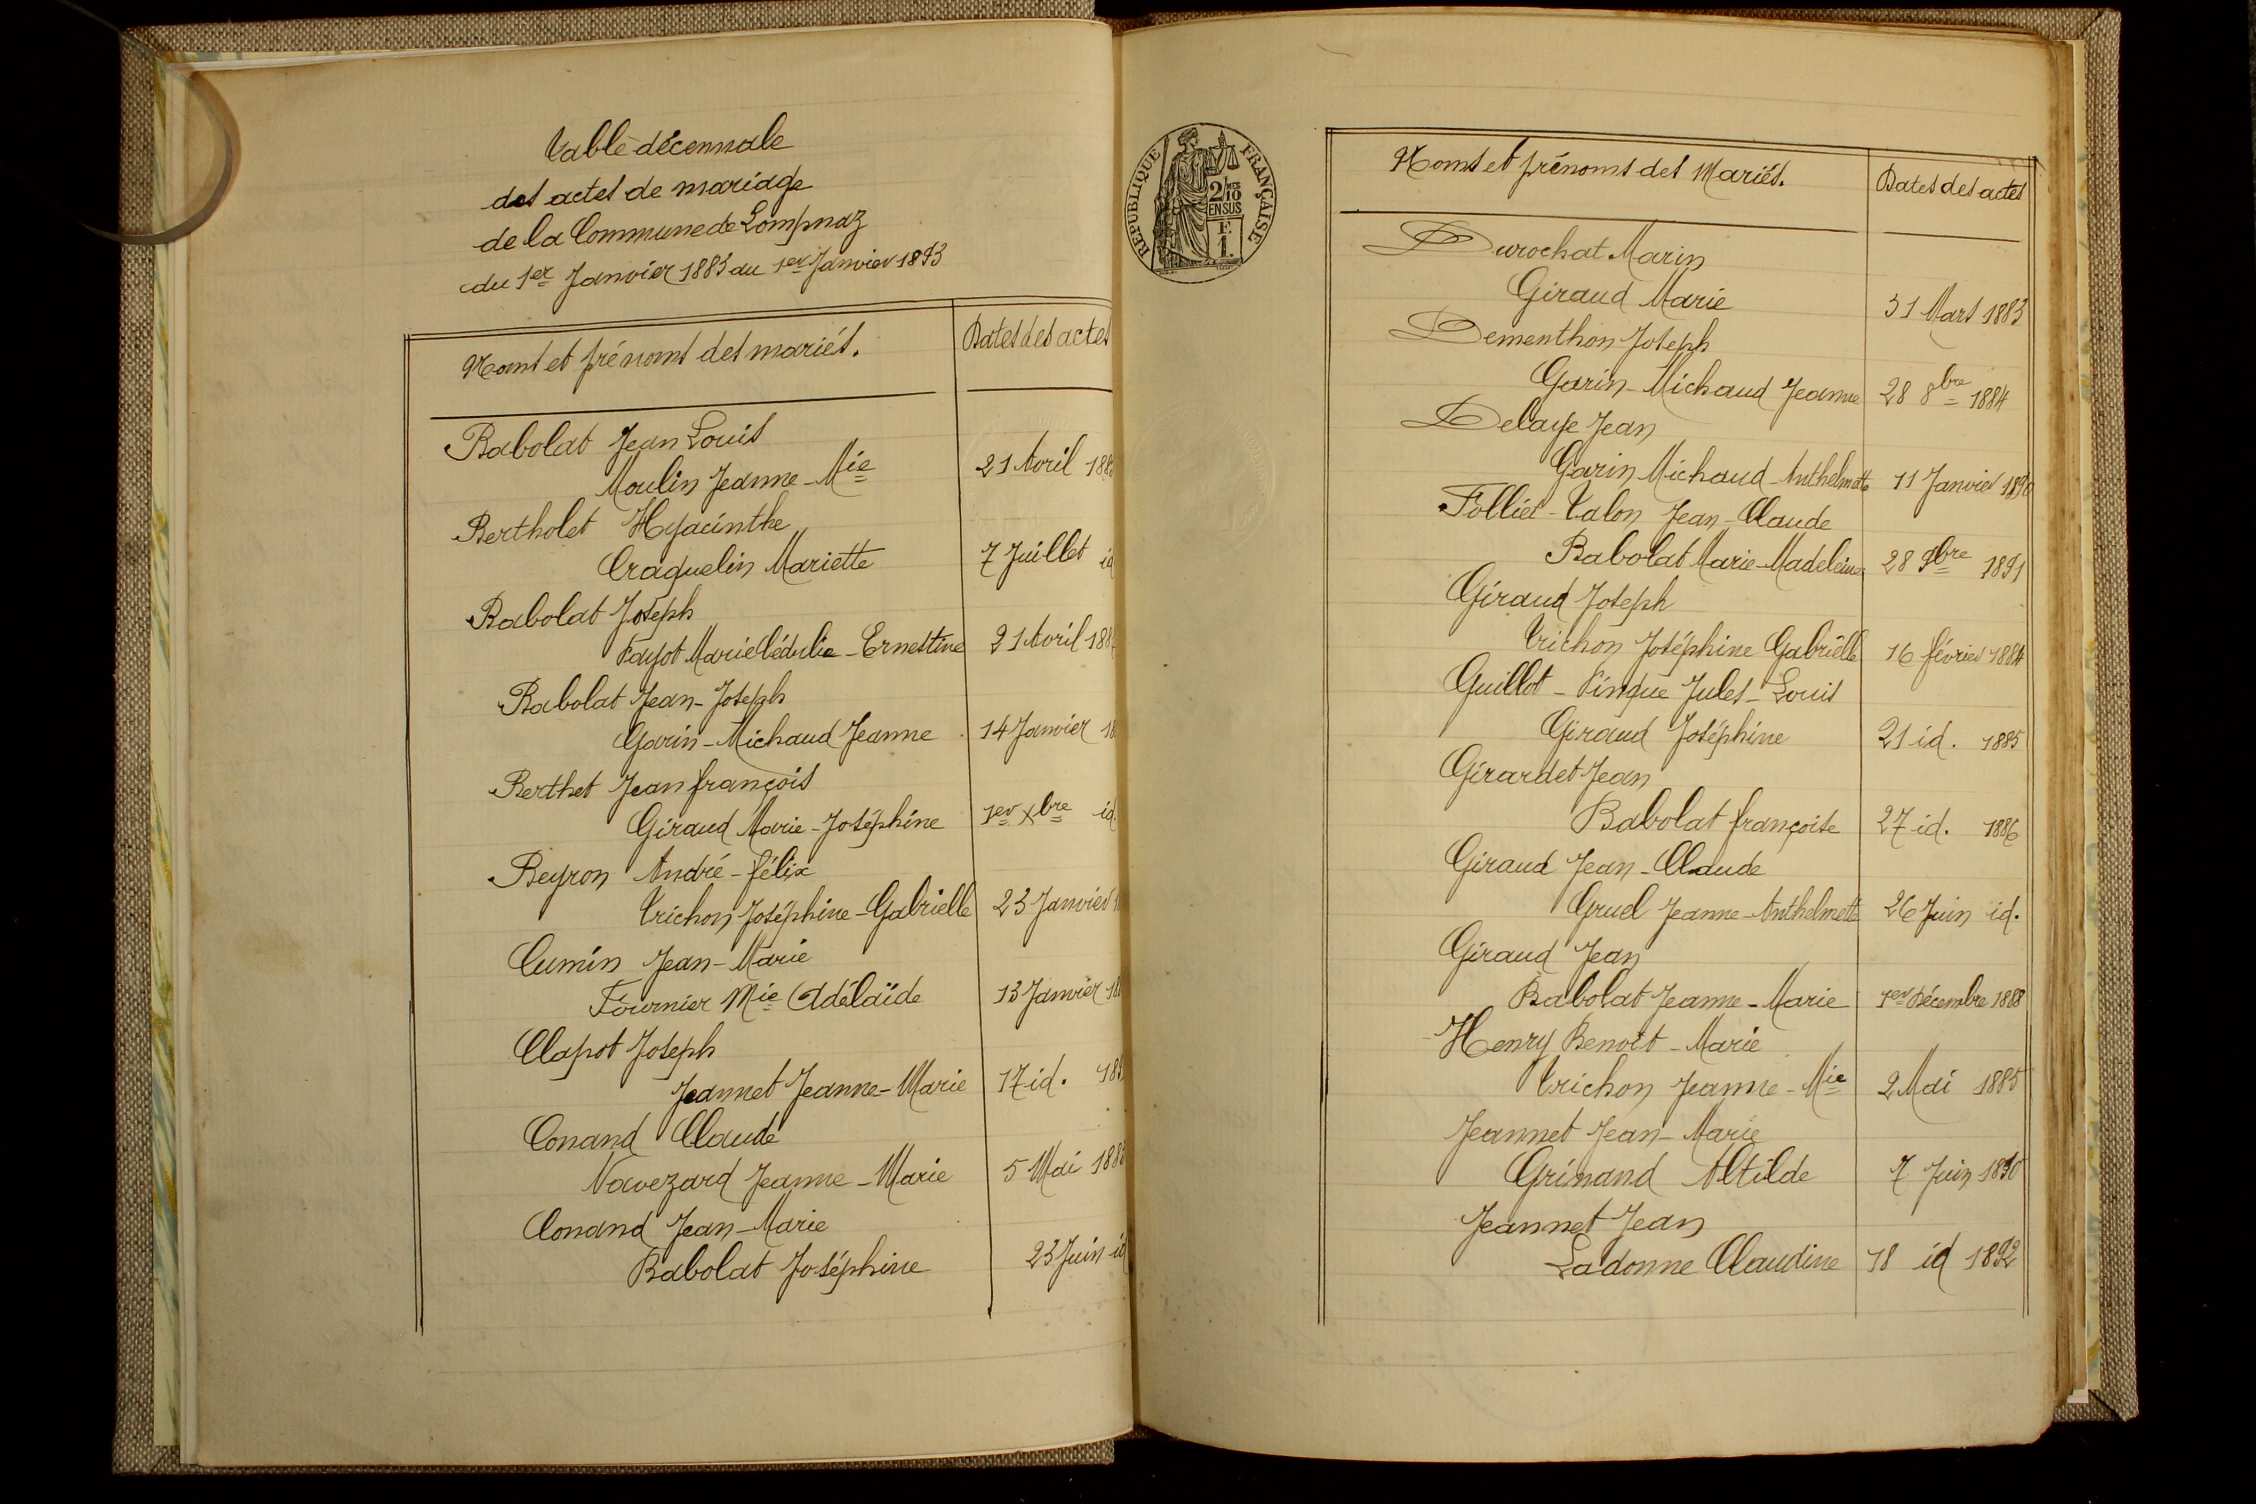 Table décennale
des actes de mariage
de la Commune de Lompnaz
du 1er Janvier 1883 au 1er Janvier 1893
Noms et prénoms des mariés. Dates des actes
Babolat Jean Louis
Moulin Jeanne-Mie 21 Avril
Bertholet Hyacinthe
Craquelin Mariette 7 Juillet id
Babolat Joseph
Payot Marie Ernestine 21 Avril
Babolat Jean-Joseph
Garin-Michaud Jeanne 14 Janvier
Berthet Jean françois
Giraud Marie-Joséphine 1er Xbre id
Beyron André-félix
Trichon Joséphine-Gabrielle 23 Janvier
Cumin Jean-Marie
Fournier Mie Adélaïde 13 Janvier
Clapot Joseph
Jeannet Jeanne-Marie 17 id.
Conand Claude
Navezard Jeanne-Marie 5 Mai 188
Conand Jean-Marie
Babolat Joséphine 23 Juin id
REPUBLIQUE FRANÇAISE
2/10
EN SUS
E
1.
Noms et prénoms des Mariés. Dates des actes
Durochat Marin
Giraud Marie 31 Mars 1883
Dementhon Joseph
Garin-Michaud Jeanne 28 8bre 1884
Delaye Jean
Garin Michaud-Anthelmette 11 Janvier 1890
Folliet-Talon Jean-Claude
Babolat Marie-Madeleine 28 9bre 1891
Giraud Joseph
Trichon Joséphine Gabrielle 16 février 1884
Guillot-Pingue Jules-Louis
Giraud Joséphine 21 id. 1885
Girardet Jean
Babolat françoise 27 id. 1886
Giraud Jean-Claude
Gruel Jeanne-Anthelmette 26 Juin id.
Giraud Jean
Babolat Jeanne-Marie 1er Décembre 1888
Henry Benoît-Marie
Trichon Jeanne-Mie 2 Mai 1885
Jeannet Jean-Marie
Grinand Altilde 7 Juin 1890
Jeannet Jean
Ladonne Claudine 18 id 1892